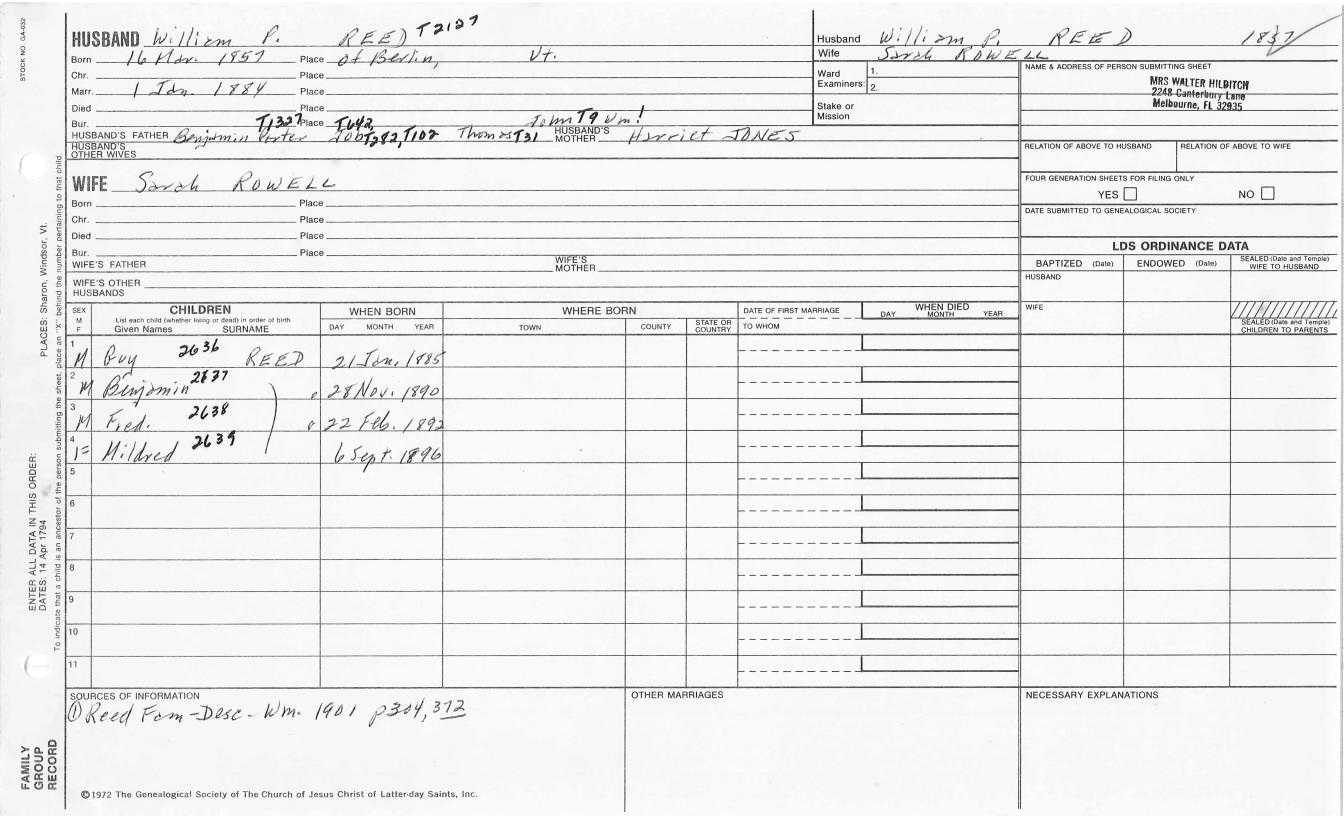 STOCK NO. GA-032
HUSBAND William P. REED T2127
Born 16 Mar. 1857 Place of Berlin, Vt.
Chr. Place
Marr. 1 Jan. 1884 Place
Died Place
Bur. T1327 Place T642, John T9 Wm!
HUSBAND'S FATHER Benjamin Porter Job T282, T102 Thomas T31 HUSBAND'S MOTHER Harriet JONES
HUSBAND'S OTHER WIVES
WIFE Sarah ROWELL
Born Place
Chr. Place
Died Place
Bur. Place
WIFE'S FATHER WIFE'S MOTHER
WIFE'S OTHER HUSBANDS
Husband William P. REED 1857
Wife Sarah ROWELL
Ward Examiners: 1. 2.
Stake or Mission
NAME & ADDRESS OF PERSON SUBMITTING SHEET
MRS WALTER HILDITCH
2248 Canterbury Lane
Melbourne, FL 32935
RELATION OF ABOVE TO HUSBAND RELATION OF ABOVE TO WIFE
FOUR GENERATION SHEETS FOR FILING ONLY
YES NO
DATE SUBMITTED TO GENEALOGICAL SOCIETY
LDS ORDINANCE DATA
BAPTIZED (Date) ENDOWED (Date) SEALED (Date and Temple) WIFE TO HUSBAND
HUSBAND
WIFE
SEALED (Date and Temple) CHILDREN TO PARENTS
SEX M F CHILDREN WHEN BORN WHERE BORN DATE OF FIRST MARRIAGE WHEN DIED
List each child (whether living or dead) in order of birth
Given Names SURNAME DAY MONTH YEAR TOWN COUNTY STATE OR COUNTRY TO WHOM DAY MONTH YEAR
1 M Guy 2636 REED 21 Jan. 1885
2 M Benjamin 2637 28 Nov. 1890
3 M Fred. 2638 22 Feb. 1892
4 F Mildred 2639 6 Sept. 1896
5
6
7
8
9
10
11
SOURCES OF INFORMATION OTHER MARRIAGES NECESSARY EXPLANATIONS
① Reed Fam-Desc- Wm. 1901 p304, 372
©1972 The Genealogical Society of The Church of Jesus Christ of Latter-day Saints, Inc.
FAMILY GROUP RECORD
ENTER ALL DATA IN THIS ORDER:
DATES: 14 Apr 1794 PLACES: Sharon, Windsor, Vt.
To indicate that a child is an ancestor of the person submitting the sheet, place an "X" behind the number pertaining to that child.